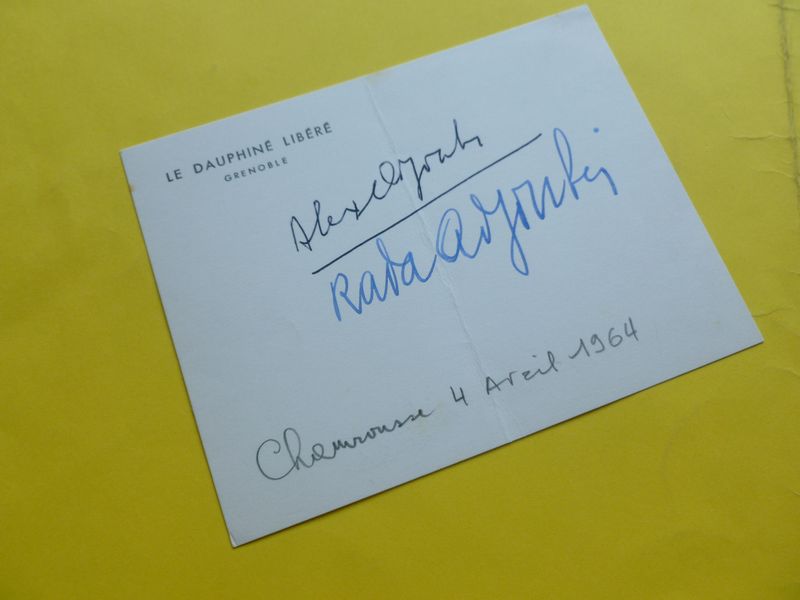 LE DAUPHINÉ LIBÉRÉ
GRENOBLE
Alex Adjoubi
Rada Adjoubéi
Chamrousse 4 Avril 1964